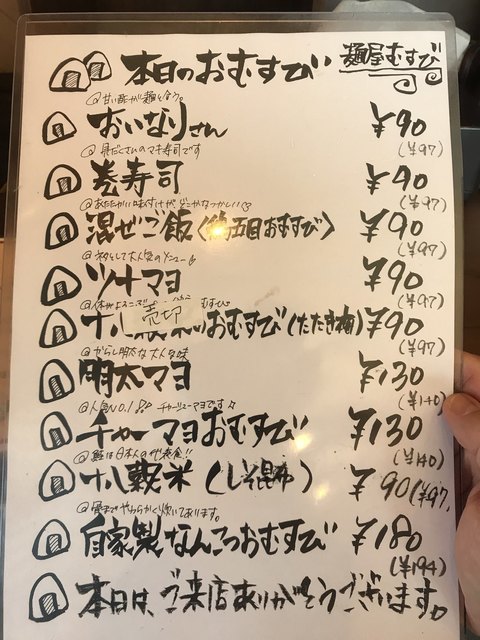 本日のおむすび 麺屋むすび
@甘い酢が麺に合う。
おいなりさん ¥90
(¥97)
@具だくさんのマキ寿司です
巻寿司 ¥90
(¥97)
@あたたかい味付けが、どこかなつかしい
混ぜご飯〈鶏五目おむすび〉 ¥90
(¥97)
ツナマヨ ¥90
(¥97)
売切
おむすび(たたき梅) ¥90
(¥97)
@からし明太な大人な味
明太マヨ ¥130
(¥140)
@人気NO.1 チャーシューマヨです☆
チャーマヨおむすび ¥130
(¥140)
@鮭は日本人の代表食!!
十八穀米(しそ昆布) ¥90(¥97)
@骨までやわらかく炊いてあります。
自家製なんこつおむすび ¥180
(¥194)
本日は、ご来店ありがとうございます。